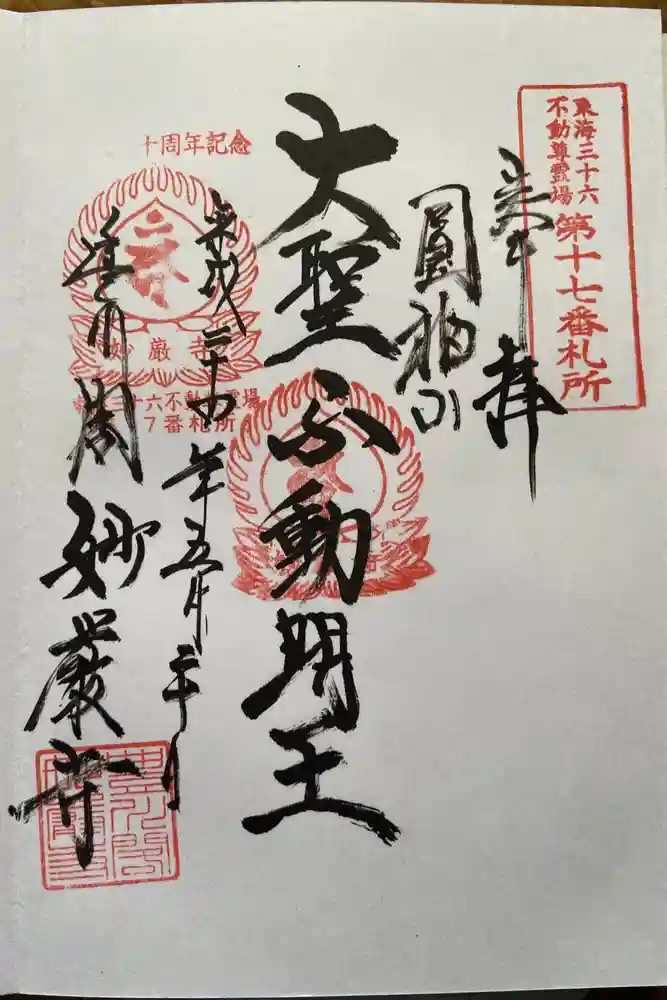 東海三十六
不動尊霊場
第十七番札所
奉拝
圓福山
大聖不動明王
平成二十四年五月二十日
豊川閣妙厳寺
十周年記念
妙厳寺
三十六不動霊場
7番札所